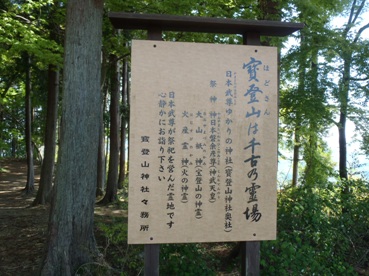 ほどさん
寳登山は千古の霊場
日本武尊ゆかりの神社（寳登山神社奥社）
祭神 神日本磐余彦尊（神武天皇）
大山祇神（宝登山の神霊）
火産霊神（火の神霊）
日本武尊が祭祀を営んだ霊地です
心静かにお詣り下さい
寳登山神社々務所